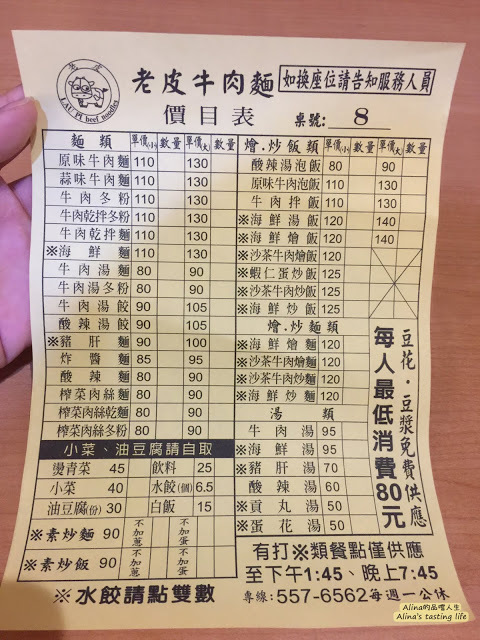 老皮
LAU PI beef noodles
老皮牛肉麵
如換座位請告知服務人員
價目表
桌號: 8
麵類 單價(小) 數量 單價(大) 數量
原味牛肉麵 110 130
蒜味牛肉麵 110 130
牛肉冬粉 110 130
牛肉乾拌冬粉 110 130
牛肉乾拌麵 110 130
※海鮮麵 110 130
牛肉湯麵 80 90
牛肉湯冬粉 80 90
牛肉湯餃 90 105
酸辣湯餃 90 105
※豬肝麵 90 100
炸醬麵 85 95
酸辣麵 80 90
榨菜肉絲麵 80 90
榨菜肉絲乾麵 80 90
榨菜肉絲冬粉 80 90
小菜、油豆腐請自取
燙青菜 45 飲料 25
小菜 40 水餃(個) 6.5
油豆腐(份) 30 白飯 15
※素炒麵 90 不加蔥 不加蛋
※素炒飯 90 不加蔥 不加蛋
※水餃請點雙數
燴.炒飯類 單價(小) 數量 單價(大) 數量
酸辣湯泡飯 80 90
原味牛肉泡飯 110 130
牛肉拌飯 110 130
※海鮮湯飯 120 140
※海鮮燴飯 120 140
※沙茶牛肉燴飯 120
※蝦仁蛋炒飯 125
※沙茶牛肉炒飯 125
※海鮮炒飯 125
燴.炒麵類
※海鮮燴麵 120
※沙茶牛肉燴麵 120
※沙茶牛肉炒麵 120
※海鮮炒麵 120
湯類
牛肉湯 95
※海鮮湯 95
※豬肝湯 70
酸辣湯 60
※貢丸湯 50
※蛋花湯 50
豆花.豆漿免費供應
每人最低消費80元
有打※類餐點僅供應
至下午1:45、晚上7:45
專線: 557-6562 每週一公休
Alina的品嚐人生
Alina's tasting life